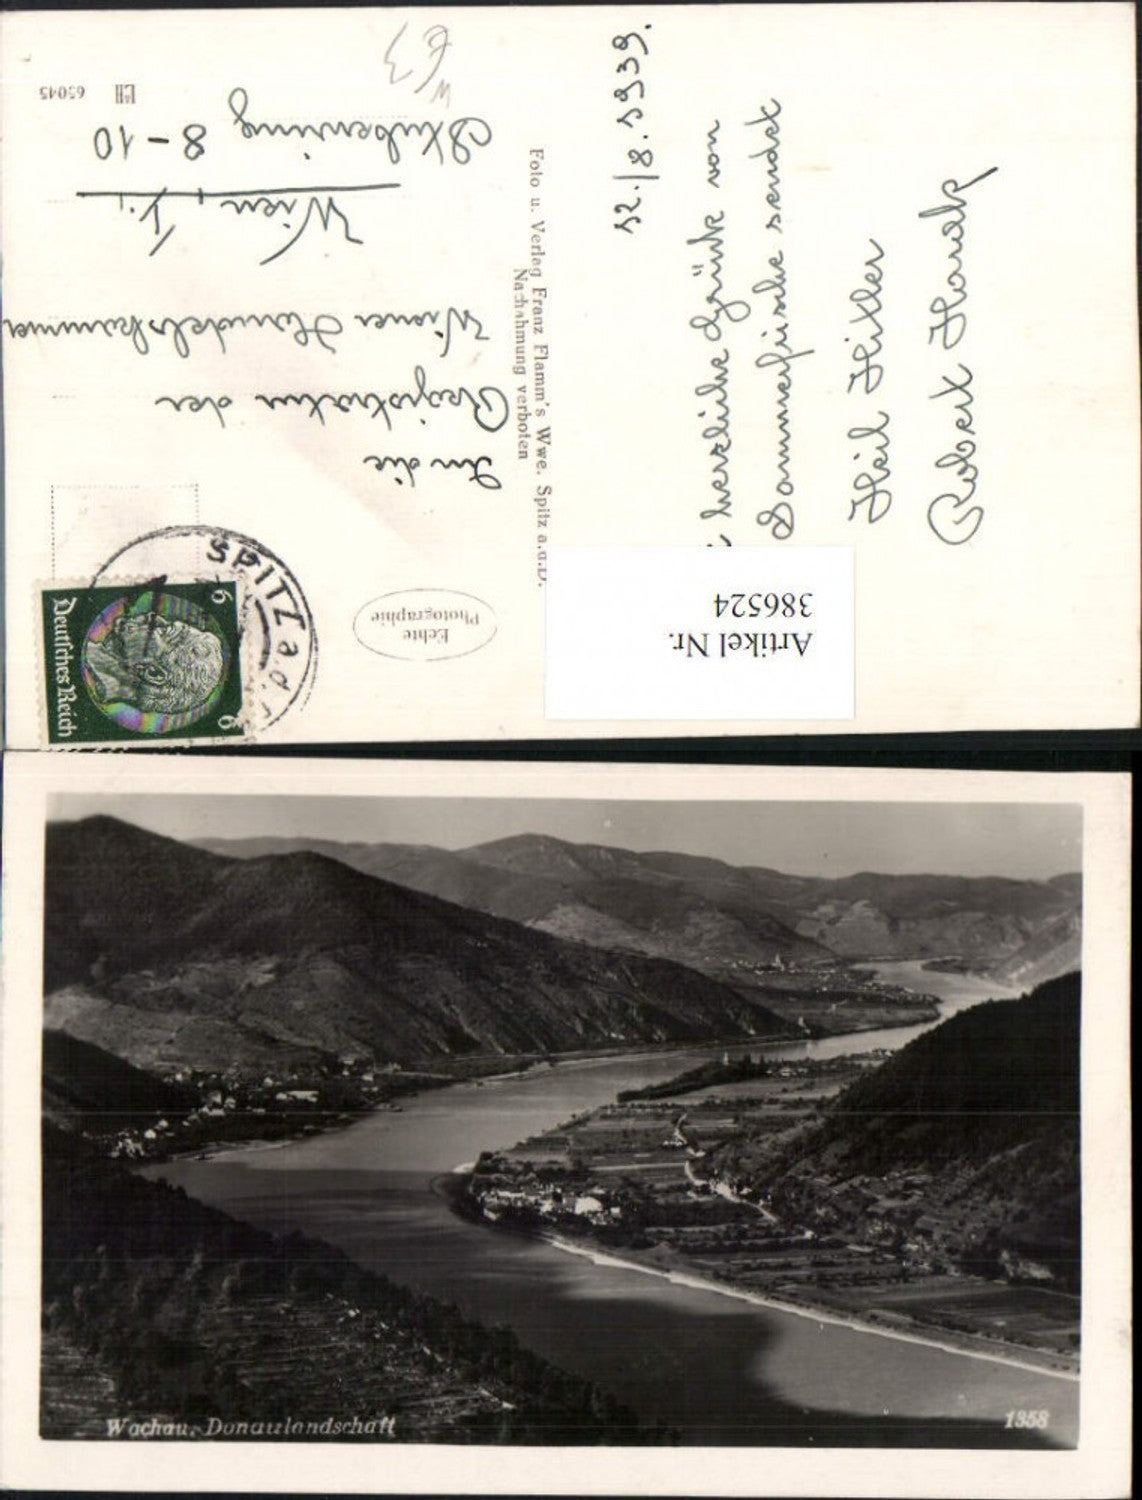 12./8.1939.
herzliche Grüße von
Sommerfrische sendet
Heil Hitler
Robert
Foto u. Verlag Franz Flamm's Wwe. Spitz a.d.D.
Nachahmung verboten
Echte
Photographie
Deutsches Reich
6
6
SPITZ a.d.
An die
Registratur der
Wiener Handelskammer
Wien, I.,
Stubenring 8-10
65045
Artikel Nr.
386524
Wachau, Donaulandschaft
1358